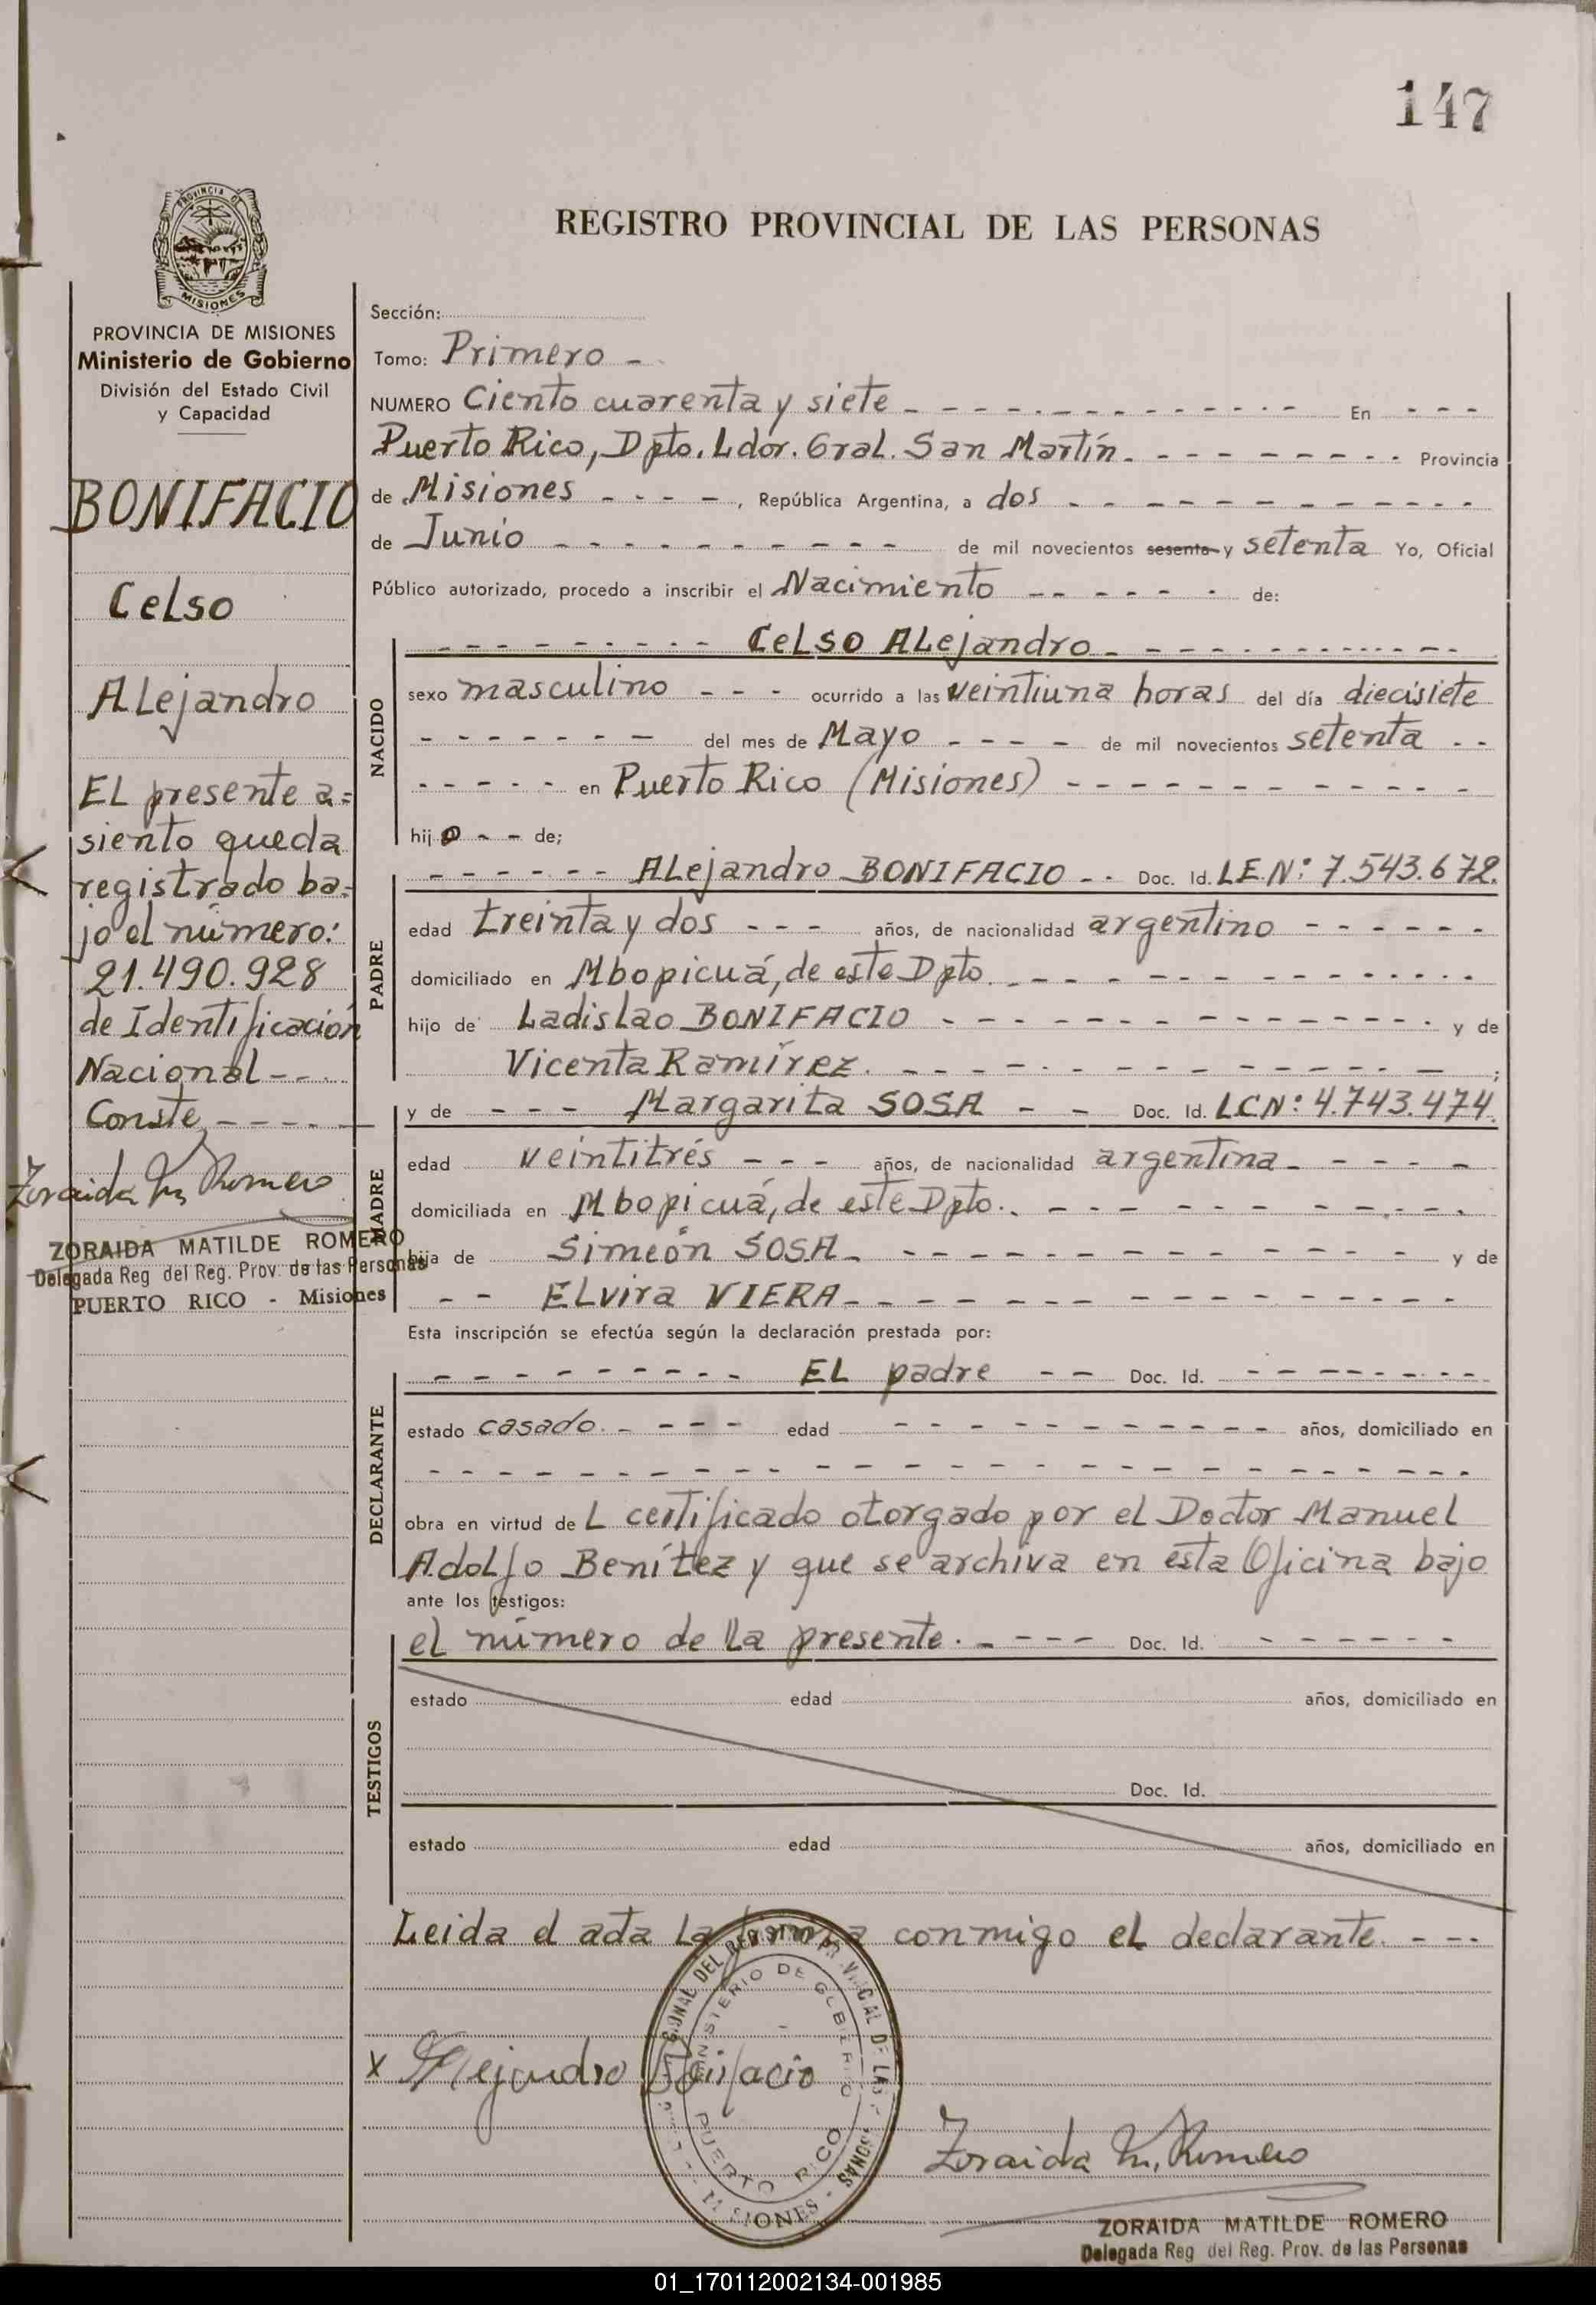 147
PROVINCIA DE
MISIONES
REGISTRO PROVINCIAL DE LAS PERSONAS
PROVINCIA DE MISIONES
Ministerio de Gobierno
División del Estado Civil
y Capacidad
BONIFACIO
Celso
Alejandro
El presente a=
siento queda
registrado ba=
jo el número:
21.490.928
de Identificación
Nacional - - -
Conste, - - - -
Zoraida M. Romero
ZORAIDA MATILDE ROMERO
Delegada Reg del Reg. Prov. de las Personas
PUERTO RICO - Misiones
Sección:
Tomo: Primero -
NUMERO Ciento cuarenta y siete - - - - - - - - - - - - En - - -
Puerto Rico, Dpto. Ldor. Gral. San Martín. - - - - - - - - Provincia
de Misiones - - - -, República Argentina, a dos - - - - - - - - - - - -
de Junio - - - - - - - - - - de mil novecientos sesenta y setenta Yo, Oficial
Público autorizado, procedo a inscribir el Nacimiento - - - - - - de:
NACIDO
- - - - - - - - - Celso Alejandro - - - - - - - - - - - -
sexo masculino - - - ocurrido a las veintiuna horas del día diecisiete
- - - - - - - del mes de Mayo - - - - de mil novecientos setenta - -
- - - - - en Puerto Rico (Misiones) - - - - - - - - - - - -
hijo - - de;
PADRE
- - - - - - Alejandro BONIFACIO - - Doc. Id. LE.Nº: 7.543.672.
edad treinta y dos - - - años, de nacionalidad argentino - - - - - -
domiciliado en Mbopicuá, de este Dpto. - - - - - - - - - - - -
hijo de Ladislao BONIFACIO - - - - - - - - - - - - - - y de
Vicenta Ramírez. - - - - - - - - - - - - - - ;
MADRE
y de - - - Margarita SOSA - - Doc. Id. LCNº: 4.743.474.
edad veintitrés - - - años, de nacionalidad argentina - - - - -
domiciliada en Mbopicuá, de este Dpto. - - - - - - - - - - -
hija de Simeón SOSA - - - - - - - - - - - - - y de
- - Elvira VIERA - - - - - - - - - - - - - -
Esta inscripción se efectúa según la declaración prestada por:
DECLARANTE
- - - - - - - - - - El padre - - Doc. Id. - - - - - - - -
estado casado. - - - - edad - - - - - - - - - - - años, domiciliado en
- - - - - - - - - - - - - - - - - - - - - - - -
obra en virtud del certificado otorgado por el Doctor Manuel
Adolfo Benítez y que se archiva en esta Oficina bajo
ante los testigos:
el número de lla presente. - - - - Doc. Id. - - - - - -
TESTIGOS
estado edad años, domiciliado en
Doc. Id.
estado edad años, domiciliado en
Leida el acta la firma conmigo el declarante. - - -
x Alejandro Bonifacio
MINISTERIO DE GOBIERNO
PUERTO RICO
MISIONES
Zoraida M. Romero
ZORAIDA MATILDE ROMERO
Delegada Reg del Reg. Prov. de las Personas
01_170112002134-001985